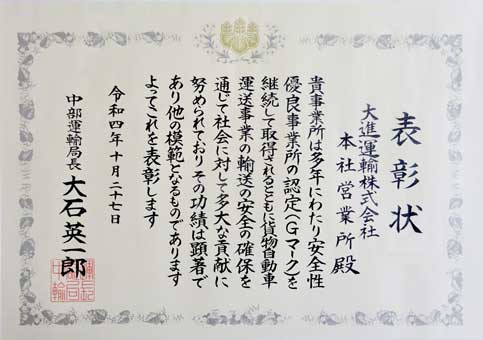 表彰状
大進運輸株式会社
本社営業所殿
貴事業所は多年にわたり安全性
優良事業所の認定(Gマーク)を
継続して取得されるとともに貨物自動車
運送事業の輸送の安全の確保を
通じて社会に対して多大な貢献に
努められておりその功績は顕著で
あり他の模範となるものであります
よってこれを表彰します
令和四年十月二十七日
中部運輸局長 大石英一郎